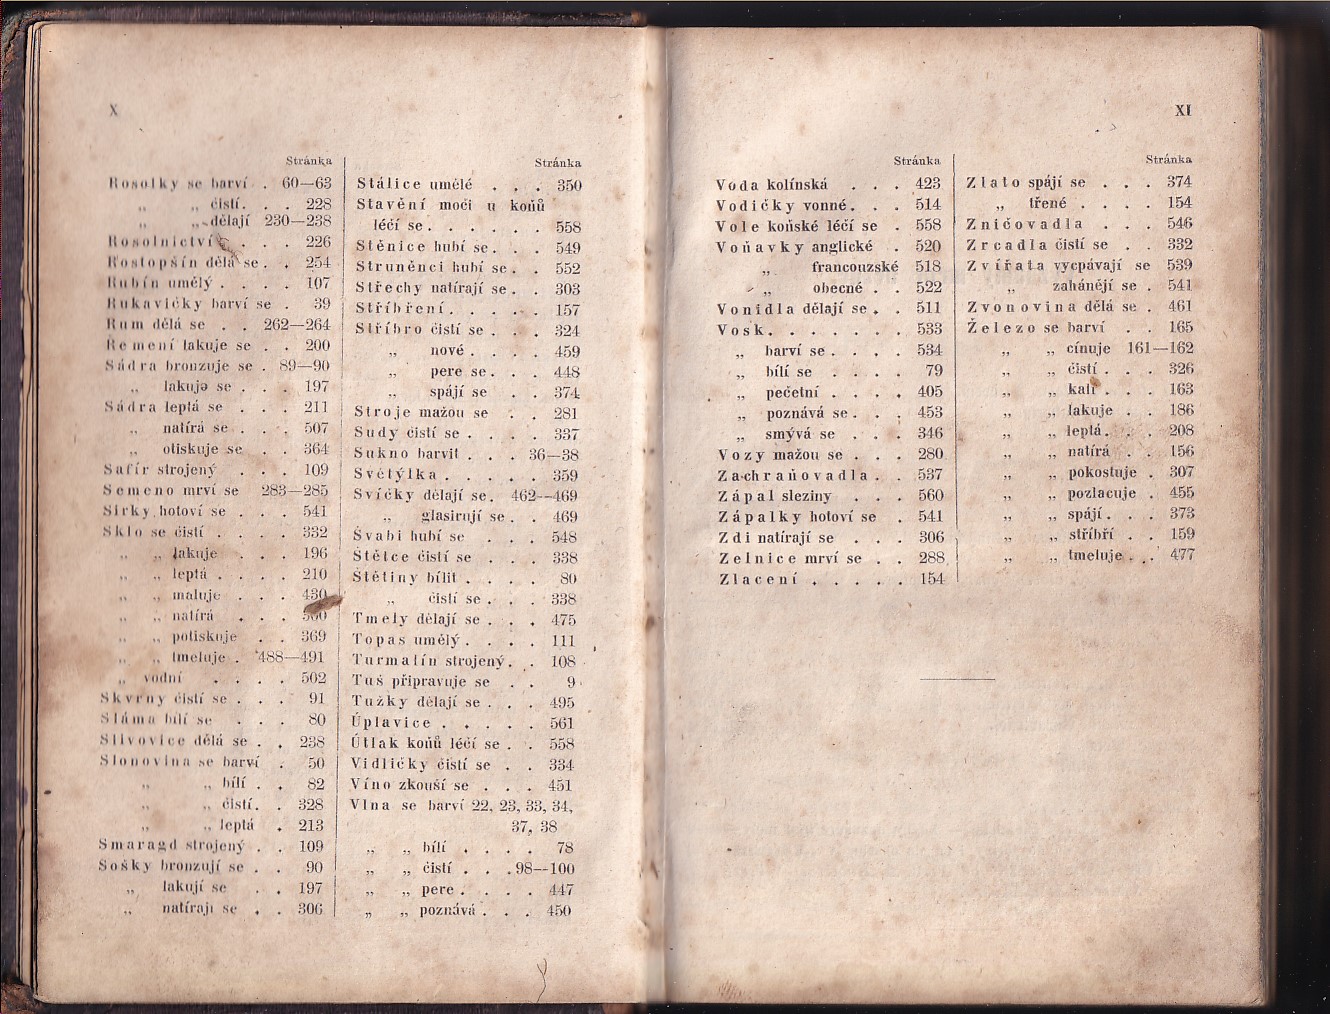 X
Stránka
Rosolky se barví . 60—63
„ „ čistí. . . 228
„ „ dělají 230—238
Rosolnictví . . . 226
Rostopšín dělá se . . 254
Rubín umělý . . . . 107
Rukavičky barví se . 39
Rum dělá se . . 262—264
Řemení lakuje se . . 200
Sádra bronzuje se . 89—90
„ lakuje se . . . 197
Sádra leptá se . . . 211
„ natírá se . . . 507
„ otiskuje se . . 364
Safír strojený . . . 109
Semeno mrví se 283—285
Sirky hotoví se . . . 541
Sklo se čistí . . . . 332
„ „ lakuje . . . 196
„ „ leptá . . . . 210
„ „ maluje . . . 430
„ „ natírá . . .
„ „ potiskuje . . 369
„ „ tmeluje . 488—491
„ vodní . . . . 502
Skvrny čistí se . . . 91
Sláma bílí se . . . 80
Slivovice dělá se . . 238
Slonovina se barví . 50
„ „ bílí . . 82
„ „ čistí. . 328
„ „ leptá . 213
Smaragd strojený . . 109
Sošky bronzují se . . 90
„ lakují se . . 197
„ natírají se . . 306
Stránka
Stálice umělé . . . 350
Stavění moči u koňů
léčí se . . . . . . 558
Stěnice hubí se . . . 549
Struněnci hubí se . . 552
Střechy natírají se . . 303
Stříbření . . . . . 157
Stříbro čistí se . . . 324
„ nové . . . . 459
„ pere se . . . 448
„ spájí se . . 374
Stroje mažou se . . 281
Sudy čistí se . . . . 337
Sukno barvit . . . 36—38
Světýlka . . . . . 359
Svíčky dělají se . 462—469
„ glasirují se . . 469
Švabi hubí se . . . 548
Štětce čistí se . . . 338
Štětiny bílit . . . . 80
„ čistí se . . . 338
Tmely dělají se . . . 475
Topas umělý . . . . 111
Turmalín strojený . . 108
Tuš připravuje se . . 9
Tužky dělají se . . . 495
Úplavice . . . . . 561
Útlak koňů léčí se . . 558
Vidličky čistí se . . 334
Víno zkouší se . . . 451
Vlna se barví 22, 23, 33, 34,
37, 38
„ „ bílí . . . . 78
„ „ čistí . . . 98—100
„ „ pere . . . . 447
„ „ poznává . . . 450
XI
Stránka
Voda kolínská . . . 423
Vodičky vonné . . . 514
Vole koňské léčí se . 558
Voňavky anglické . 520
„ francouzské 518
„ obecné . . 522
Vonidla dělají se . . 511
Vosk . . . . . . . 533
„ barví se . . . . 534
„ bílí se . . . . 79
„ pečetní . . . . 405
„ poznává se . . . 453
„ smývá se . . . 346
Vozy mažou se . . . 280
Zachraňovadla . . 537
Zápal sleziny . . . 560
Zápalky hotoví se . 541
Zdi natírají se . . . 306
Zelnice mrví se . . 288
Zlacení . . . . . 154
Stránka
Zlato spájí se . . . 374
„ třené . . . . 154
Zničovadla . . . 546
Zrcadla čistí se . . 332
Zvířata vycpávají se 539
„ zahánějí se . 541
Zvonovina dělá se . 461
Železo se barví . . 165
„ „ cínuje 161—162
„ „ čistí . . . 326
„ „ kalí . . . 163
„ „ lakuje . . 186
„ „ leptá . . . 208
„ „ natírá . . 156
„ „ pokostuje . 307
„ „ pozlacuje . 455
„ „ spájí . . . 373
„ „ stříbří . . 159
„ „ tmeluje . . 477